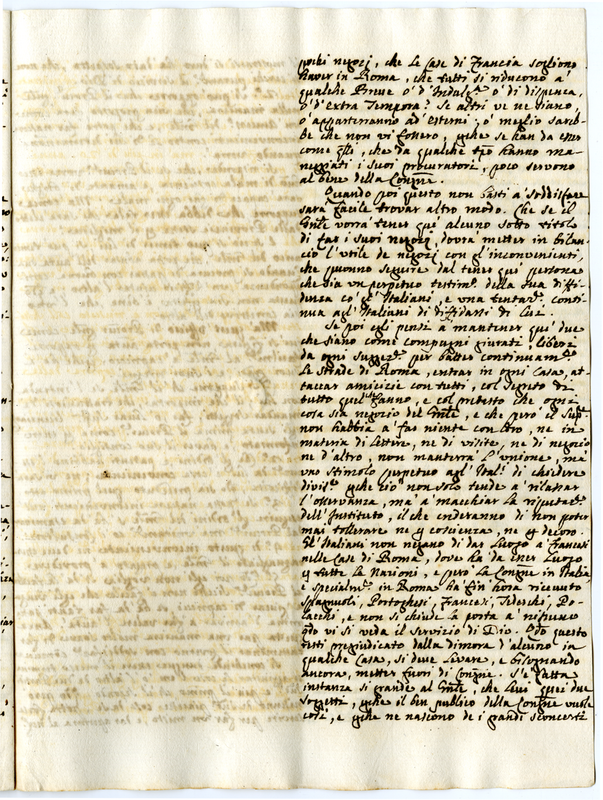 pochi negozj, che le Case di Francia sogliono
haver in Roma, che tutti si riducono a'
qualche Breve o' d'Indulg.ª o' di dispenca,
o' d'extra Tempora? Se altri ve ne siano,
o' apparterranno ad esterni, o' meglio sareb-
be che non vi fossero, perche se han da esser
come che da qualche tpo hanno ma-
neggiati i suoi procuratori, poco servono
al bene della Congne.
Quando poi questo non basti a' sodisfare
sarà facile trovar altro modo. Che se il
Gnle vorrà tener quì alcuno sotto titolo
di far i suoi negozj, dovrà metter in bilan-
cio l'utile de negozi con gl'inconvenienti,
che puonno seguire dal tener quì persona
che sia un perpetuo testim.º della sua diffi-
denza co' gl'Italiani, e una tentaz.e conti-
nua agl'Italiani di diffidarsi di Lui.
Se poi egli pensa a' mantener quì due
che siano come compagni giurati, liberi
da ogni per batter continuam.te
le strade di Roma, entrar in ogni Casa, at-
taccar amicizie con tutti, col segreto di
tutto quel che fanno, e col pretesto che ogni
cosa sia negozio del Gnle, e che però il Sup.re
non habbia a' far niente con loro, ne in
materia di lettere, ne di visite, ne di negozio
ne d'altro, non manterrà l'unione, ma
uno stimolo perpetuo agl'Ital.i di chiedere
divis.e perche ciò non solo tende a' rilassar
l'osservanza, ma' a' macchiar la riputaz.e
dell'Instituto, il che crederanno di non poter
mai tollerare ne p coscienza, ne p decoro.
Gl'Italiani non negano di dar luogo a' Francesi
nelle Case di Roma, dove ha da esser luogo
p tutte le Nazioni, e però la Congne in Italia
e specialm.te in Roma ha' fin' hora ricevuto
Spagnuoli, Portoghesi, Francesi, Tedeschi, Po-
lacchi, e non si chiude la porta a nissuno
qdo vi si veda il servizio di Dio. Qdo questo
resti pregiudicato dalla dimora d'alcuno in
qualche Casa, si deve levare, e bisognando
ancora, metter fuori di Congne. S'è fatta
instanza sì grande al Gnle, che levi quei due
Soggetti, perche il ben publico della Congne vuole
così, e perche ne nascono de i grandi sconcerti